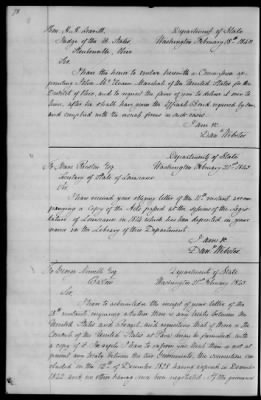 78
Hon. H. H. Leavitt,
Department of State
Judge of the U. States,
Washington February, 18th 1843.
Steubenville, Ohio
Sir
I have the honor to enclose herewith a Commission ap-
pointing John McElvain Marshal of the United States for the
District of Ohio, and to request the favor of you to deliver it over to
him, after he shall have given the Official Bond required by law
and complied with the usual forms in such cases.
I am &c.
Danl. Webster
Department of State
To
Esq.
Washington February 20th 1843
Secretary of State of Louisiana
Sir.
I have received your obliging letter of the 10th instant accom-
panying a Copy of the Acts passed at the session of the Legis-
lature of Louisiana in 1842 which has been deposited in your
name in the Library of this Department.
I am &c.
Danl. Webster.
To George Newell Esq.
Department of State
Washington 21st February 1843.
Sir.
I have to acknowledge the receipt of your letter of the
18th instant, enquiring whether there is any treaty between the
United States and Brazil, and requesting that if there is the
Consul of the United States at Para may be furnished with
a copy of it. In reply, I have to inform you that there is not at
present any treaty between the two Governments, the convention con-
cluded on the 12th of December 1828 having expired in December
1842 and no other having since been negotiated. Of the provisions